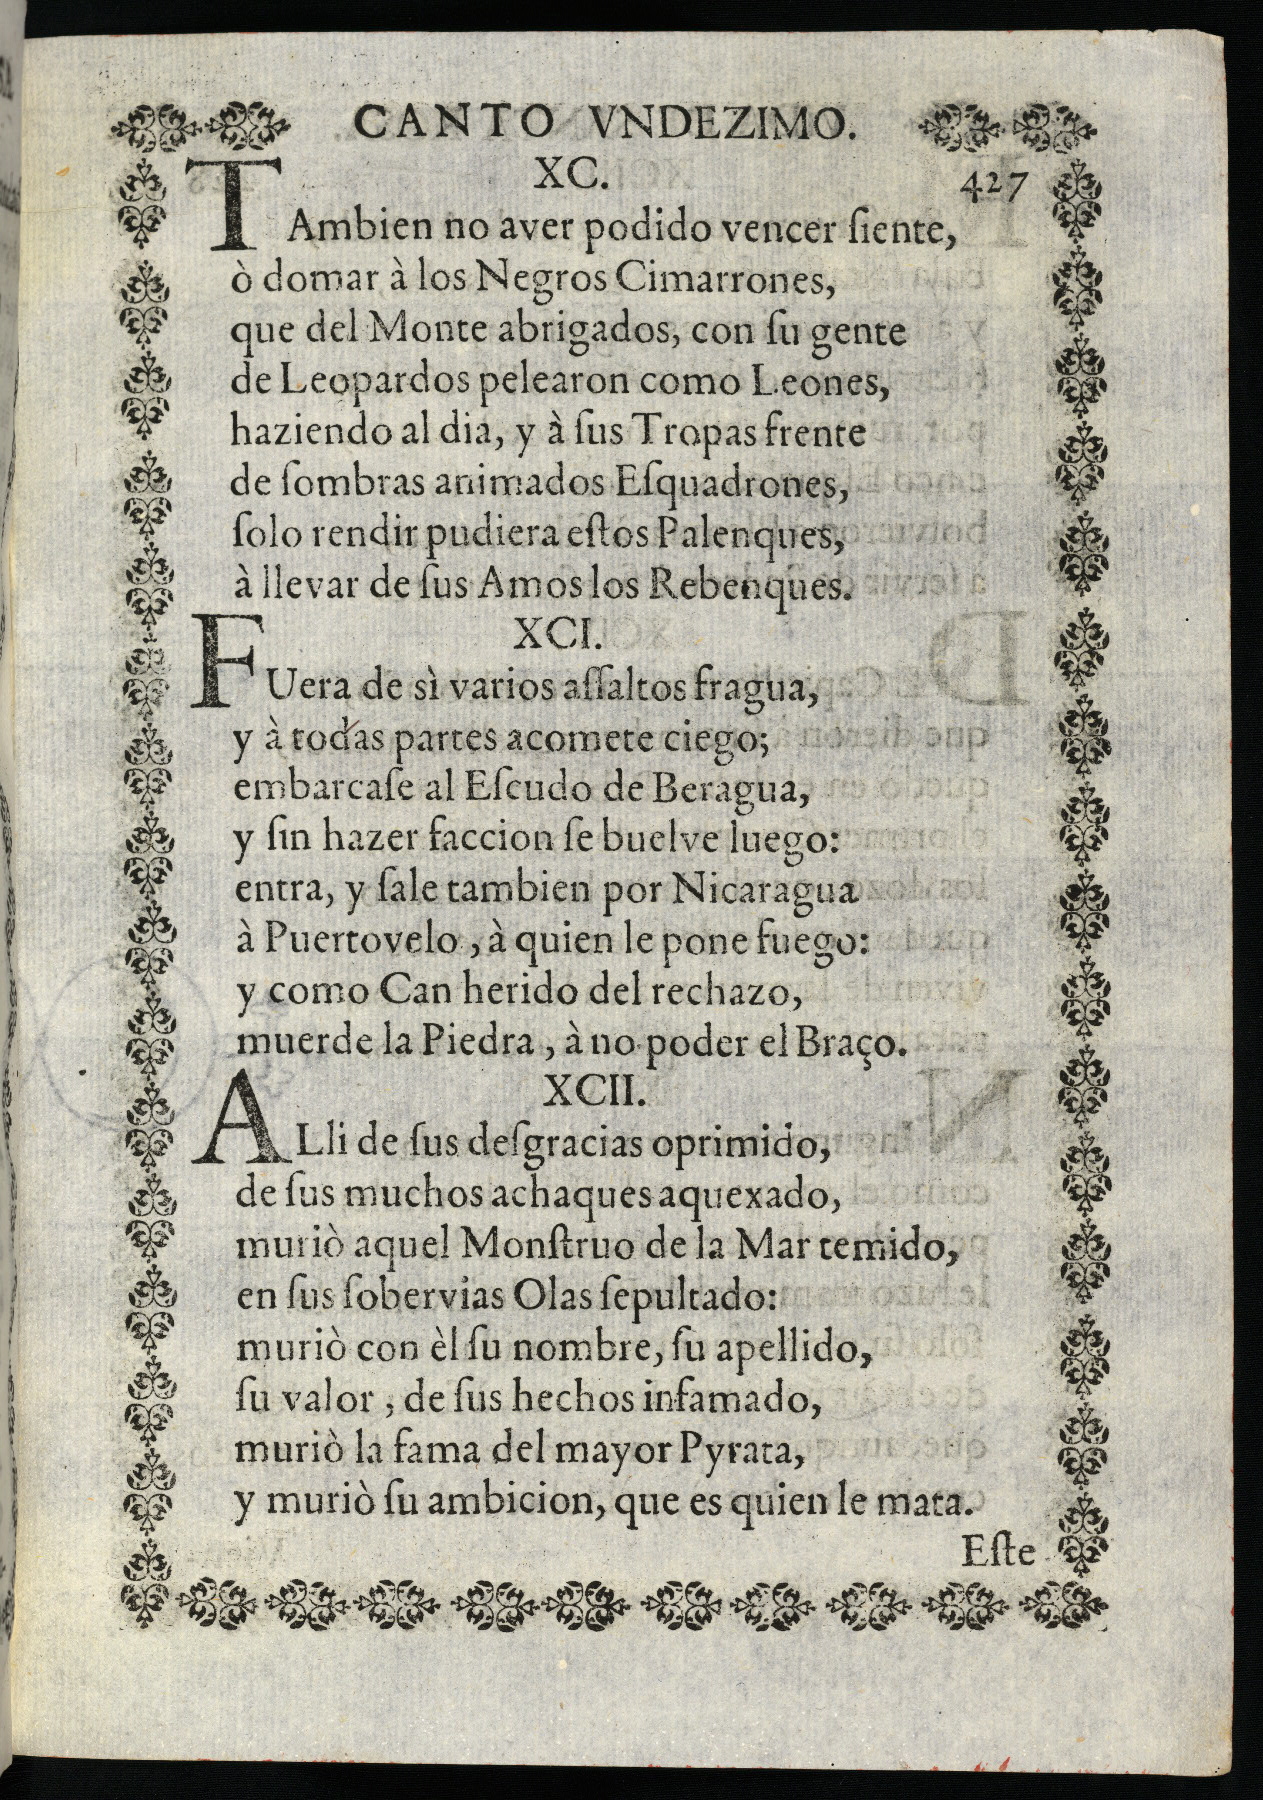 CANTO VNDEZIMO.
XC. 427
TAmbien no aver podido vencer ſiente,
ò domar à los Negros Cimarrones,
que del Monte abrigados, con ſu gente
de Leopardos pelearon como Leones,
haziendo al dia, y à ſus Tropas frente
de ſombras animados Eſquadrones,
ſolo rendir pudiera eſtos Palenques,
à llevar de ſus Amos los Rebenques.
XCI.
FUera de sì varios aſſaltos fragua,
y à todas partes acomete ciego;
embarcaſe al Eſcudo de Beragua,
y ſin hazer faccion ſe buelve luego:
entra, y ſale tambien por Nicaragua
à Puertovelo, à quien le pone fuego:
y como Can herido del rechazo,
muerde la Piedra, à no poder el Braço.
XCII.
ALli de ſus deſgracias oprimido,
de ſus muchos achaques aquexado,
muriò aquel Monſtruo de la Mar temido,
en ſus ſobervias Olas ſepultado:
muriò con èl ſu nombre, ſu apellido,
ſu valor, de ſus hechos infamado,
muriò la fama del mayor Pyrata,
y muriò ſu ambicion, que es quien le mata.
Eſte